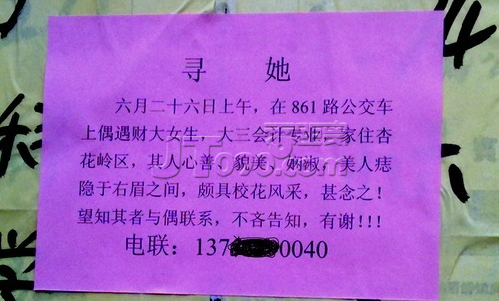 寻 她
六月二十六日上午，在861路公交车
上偶遇财大女生，大三会计专业，家住杏
花岭区，其人心善、貌美、娴淑，美人痣
隐于右眉之间，颇具校花风采，甚念之！
望知其者与偶联系，不吝告知，有谢!!!
电联：137 0040